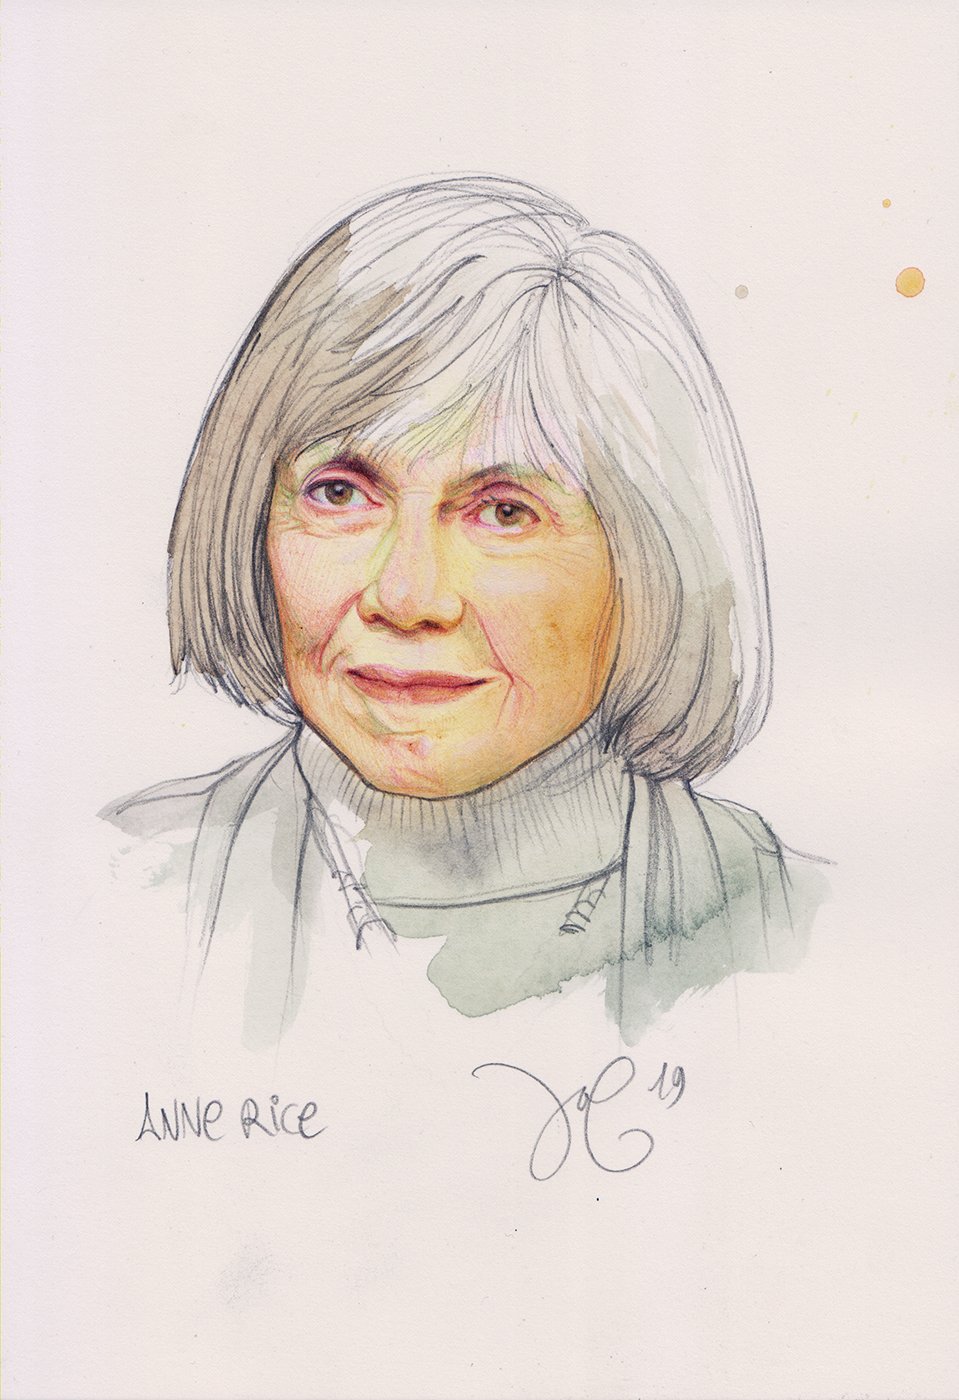 ANNE RICE
19